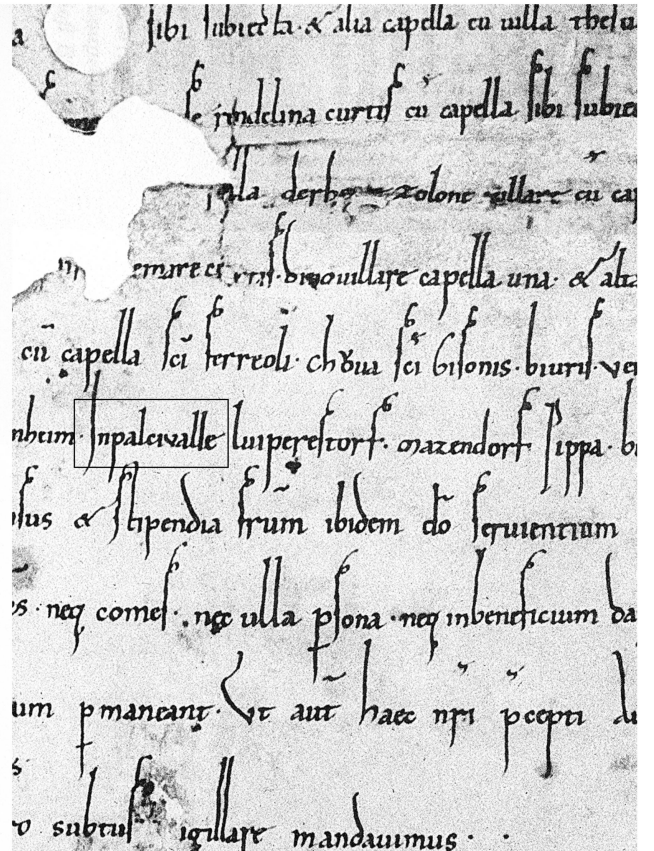 a sibi subiecta · & alia capella cū uilla thesu
se rendelina curtis cū capella sibi subiec
illa derb tolone uillare cū cap
emare curtis · bruouillare capella una · & alia
cū capella sc̄i ferreoli · sc̄i bisonis · biuris · ve
nheim · Inpaleivalle luiperestorf · mazendorf sippa · b
sus & stipendia frūm ibidem dō seruientium
s · neq comes · nec ulla psona · neq inbeneficium da
um pmaneant · Ut aūt haec nr̄i p̄cepti
subtus igillare mandauimus ·